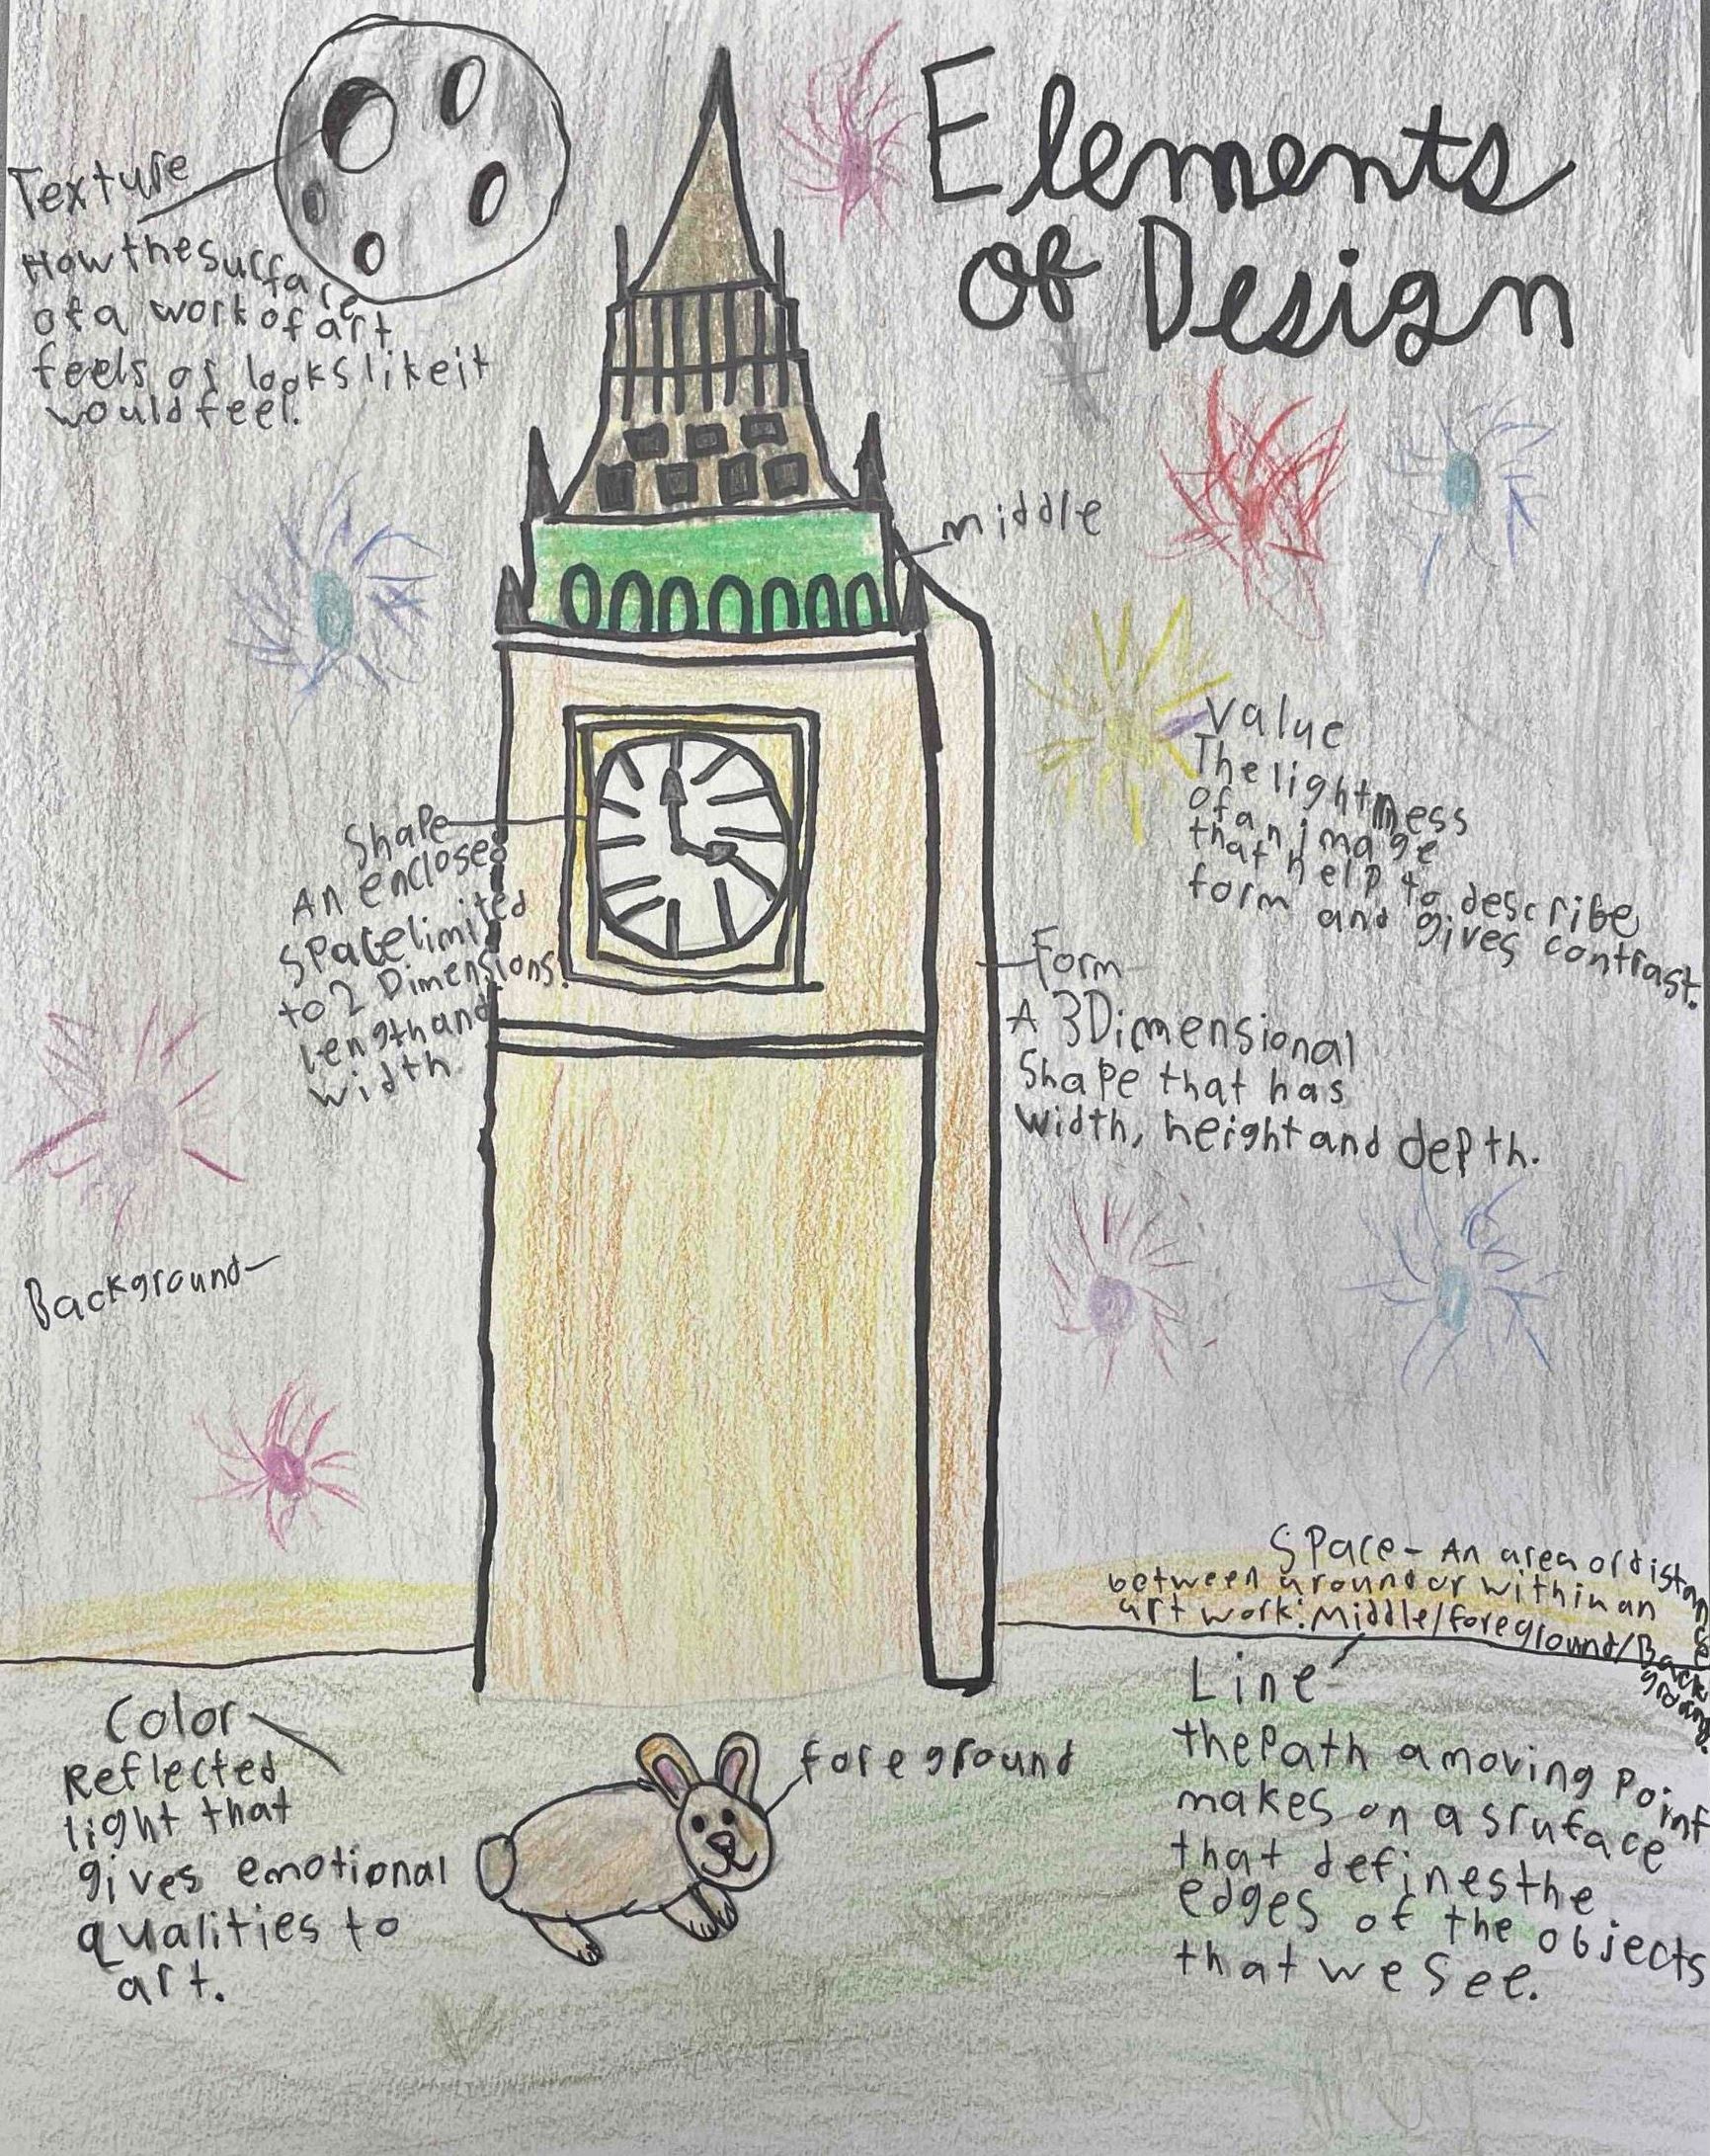 Elements
of Design
Texture
How the surface
of a work of art
feels or looks like it
would feel.
middle
Value
The lightness
of an image
that help to describe
form and gives contrast.
Shape
An enclosed
space limited
to 2 Dimensions.
Length and
width.
Form
A 3Dimensional
Shape that has
width, height and depth.
Background
Space - An area or distance
between around or within an
art work: Middle/foreground/Back
ground.
Color
Reflected
light that
gives emotional
qualities to
art.
foreground
Line
the Path a moving Point
makes on a sruface
that defines the
edges of the objects
that we see.